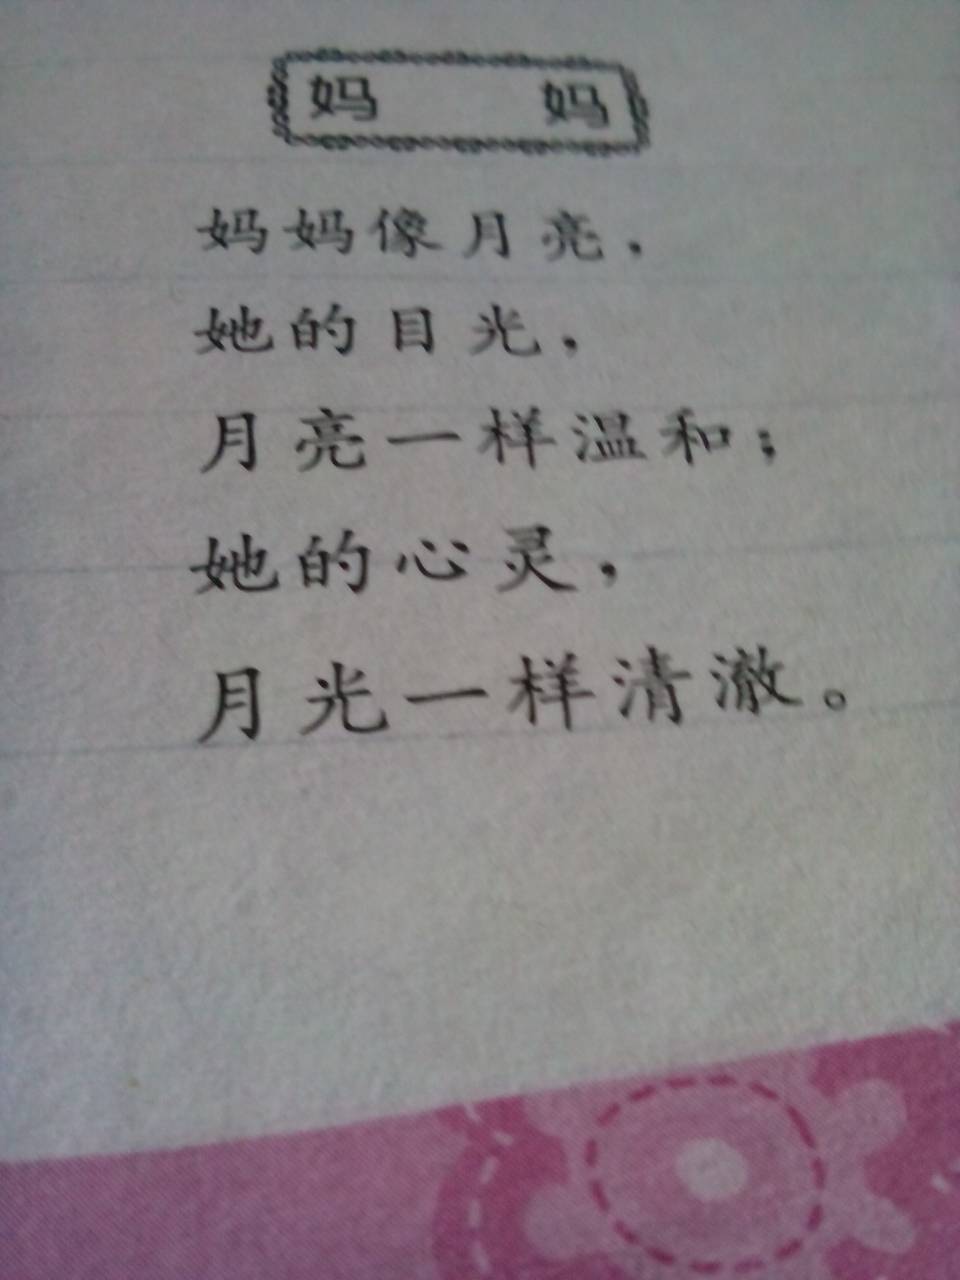 妈 妈
妈妈像月亮，
她的目光，
月亮一样温和；
她的心灵，
月光一样清澈。